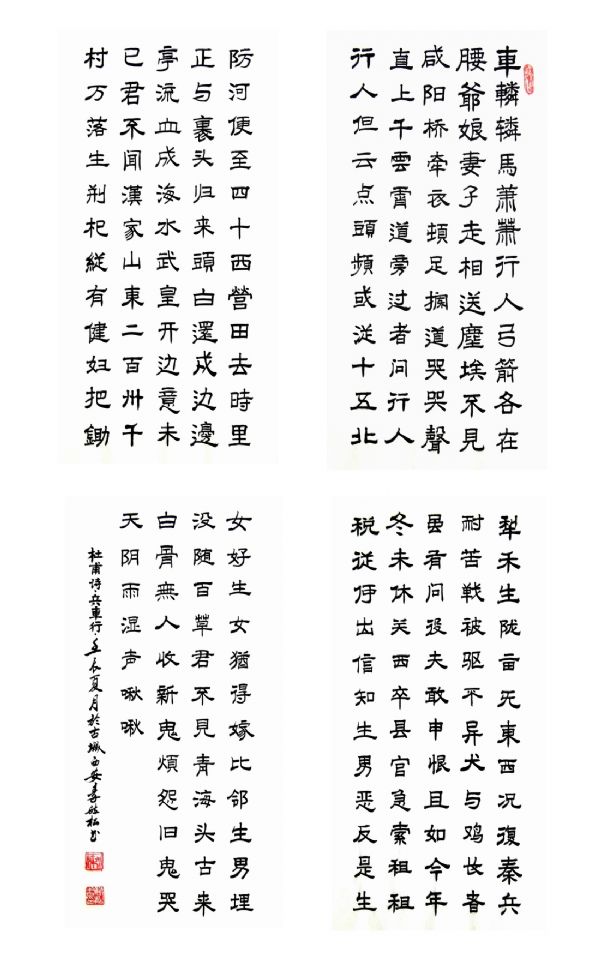 車轔辚馬萧蕭行人弓箭各在
腰爺娘妻子走相送塵埃不見
咸阳桥牵衣頓足拦道哭哭聲
直上千雲霄道旁过者问行人
行人但云点頭頻或従十五北
防河便至四十西營田去時里
正与裹头归来頭白還戍边邊
亭流血成海水武皇开边意未
已君不闻漢家山東二百州千
村万落生荆杞縱有健妇把鋤
犁禾生陇亩无東西况復秦兵
耐苦戦被驱不异犬与鸡长者
虽有问役夫敢申恨且如今年
冬未休关西卒县官急索租租
税従何出信知生男恶反是生
女好生女猶得嫁比邻生男埋
没随百草君不見青海头古来
白骨無人收新鬼煩怨旧鬼哭
天阴雨湿声啾啾
杜甫诗·兵車行·壬辰夏月於古城西安